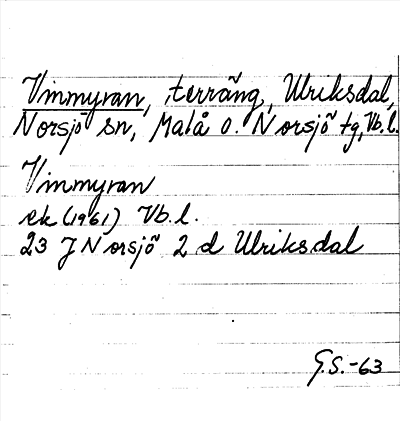 Vimmyran, terräng, Ulriksdal,
Norsjö sn, Malå o. Norsjö tg, Vb.l.
Vimmyran
ek (1961) Vb.l.
23 J Norsjö 2 d Ulriksdal
G.S.-63